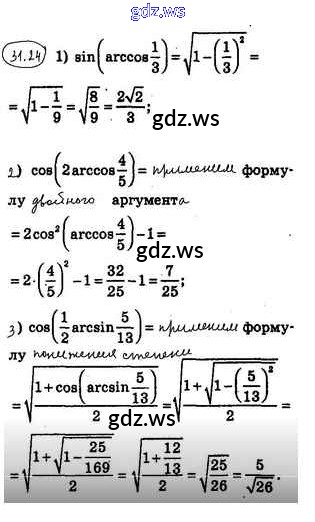 gdz.ws
31.24 1) sin(arccos 1/3) = √(1-(1/3)²) =
= √(1-1/9) = √(8/9) = 2√2/3;
gdz.ws
2) cos(2arccos 4/5) = применим форму-
лу двойного аргумента
gdz.ws
= 2cos²(arccos 4/5) - 1 =
= 2·(4/5)² - 1 = 32/25 - 1 = 7/25;
gdz.ws
3) cos(1/2 arcsin 5/13) = применим форму-
лу понижения степени
= √((1+cos(arcsin 5/13))/2) = √((1+√(1-(5/13)²))/2) =
gdz.ws
= √((1+√(1-25/169))/2) = √((1+12/13)/2) = √(25/26) = 5/√26.
gdz.ws